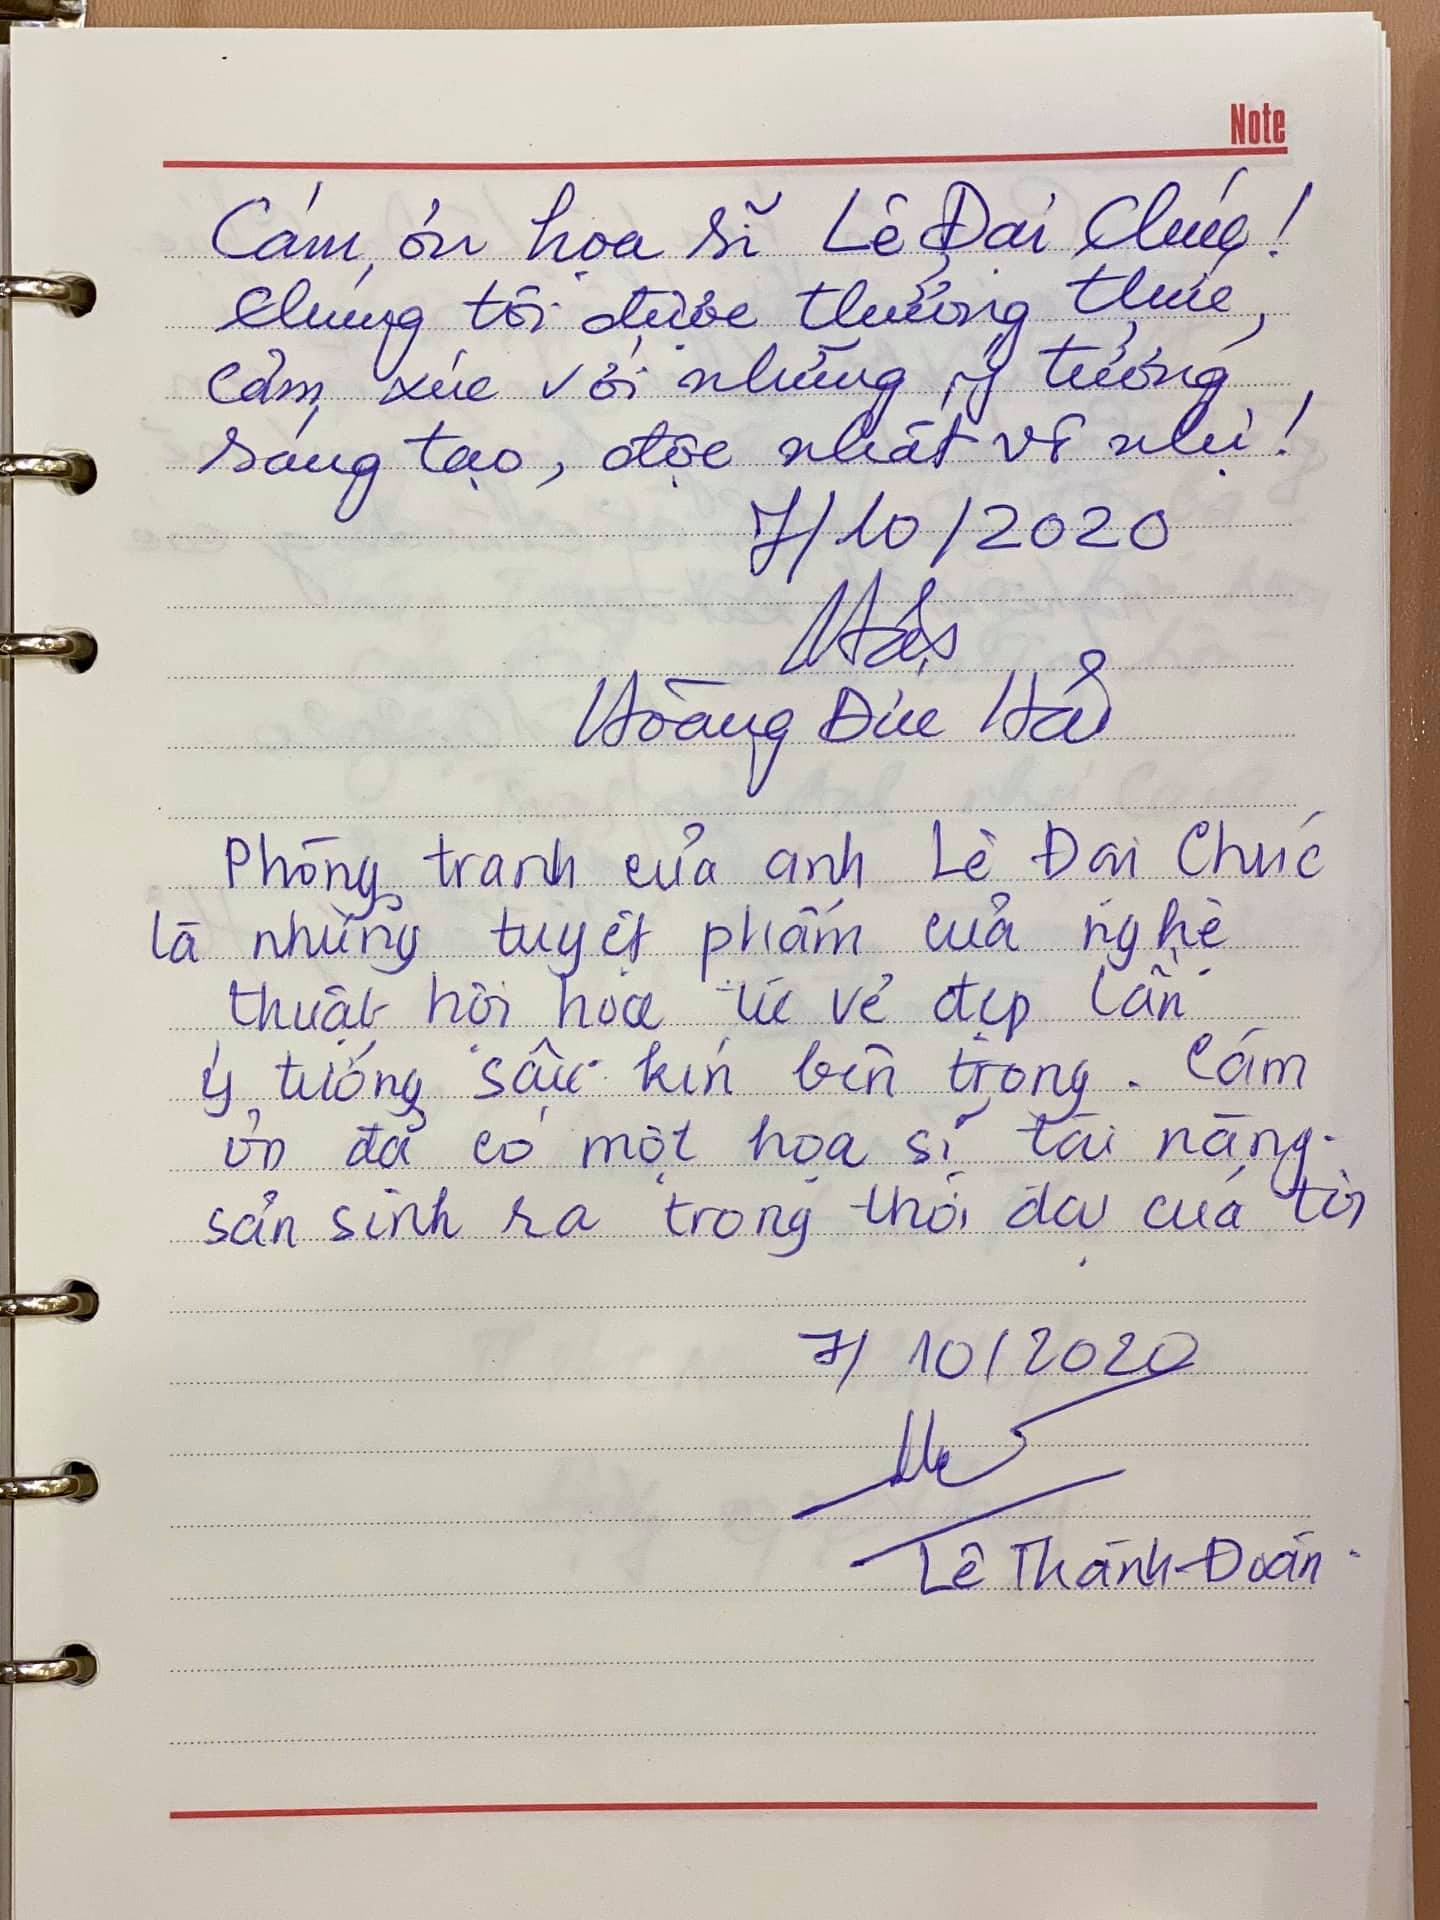 Note
Cám ơn họa sĩ Lê Đại Chúc!
Chúng tôi được thưởng thức,
cảm xúc với những ý tưởng
sáng tạo, độc nhất vô nhị!
7/10/2020
Hoàng Đức Hải
Phòng tranh của anh Lê Đại Chúc
là những tuyệt phẩm của nghệ
thuật hội họa từ vẻ đẹp lẫn
ý tưởng sâu kín bên trong. Cám
ơn đã có một họa sĩ tài năng
sản sinh ra trong thời đại của tôi
7/10/2020
Lê Thành Đoàn